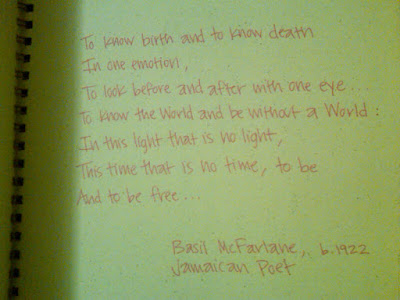 To know birth and to know death
In one emotion,
To look before and after with one eye...
To know the World and be without a World:
In this light that is no light,
This time that is no time, to be
And to be free...
Basil McFarlane, b.1922
Jamaican Poet